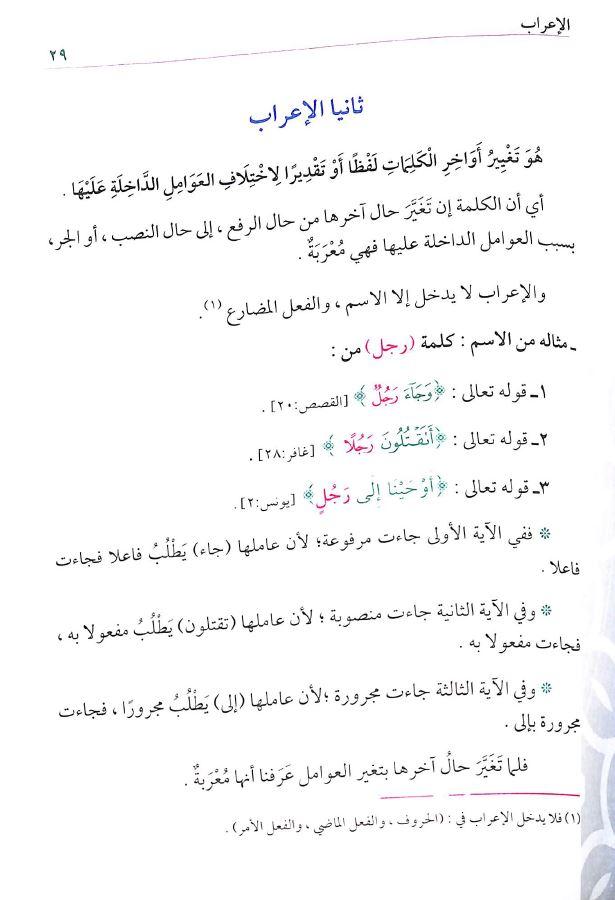 الإعراب
٢٩
ثانيا الإعراب
هُوَ تَغْيِيرُ أَوَاخِرِ الْكَلِمَاتِ لَفْظًا أَوْ تَقْدِيرًا لِاخْتِلَافِ العَوَامِلِ الدَّاخِلَةِ عَلَيْهَا .
أي أن الكلمة إن تَغَيَّرَ حال آخرها من حال الرفع ، إلى حال النصب ، أو الجر،
بسبب العوامل الداخلة عليها فهي مُعْرَبَةٌ .
والإعراب لا يدخل إلا الاسم ، والفعل المضارع (١).
ـ مثاله من الاسم : كلمة (رجل) من :
١ـ قوله تعالى : ﴿وَجَآءَ رَجُلٌ﴾ [القصص:٢٠] .
٢ـ قوله تعالى : ﴿أَتَقْتُلُونَ رَجُلًا﴾ [غافر:٢٨] .
٣ـ قوله تعالى : ﴿أَوْحَيْنَا إِلَى رَجُلٍ﴾ [يونس:٢] .
* ففي الآية الأولى جاءت مرفوعة؛ لأن عاملها (جاء) يَطْلُبُ فاعلا فجاءت
فاعلا .
* وفي الآية الثانية جاءت منصوبة ؛ لأن عاملها (تقتلون) يَطْلُبُ مفعولا به ،
فجاءت مفعولا به .
* وفي الآية الثالثة جاءت مجرورة ؛لأن عاملها (إلى) يَطْلُبُ مجرورًا ، فجاءت
مجرورة بإلى .
فلما تَغَيَّرَ حالُ آخرها بتغير العوامل عَرَفنا أنها مُعْرَبَةٌ .
(١) فلا يدخل الإعراب في : (الحروف ، والفعل الماضي ، والفعل الأمر) .